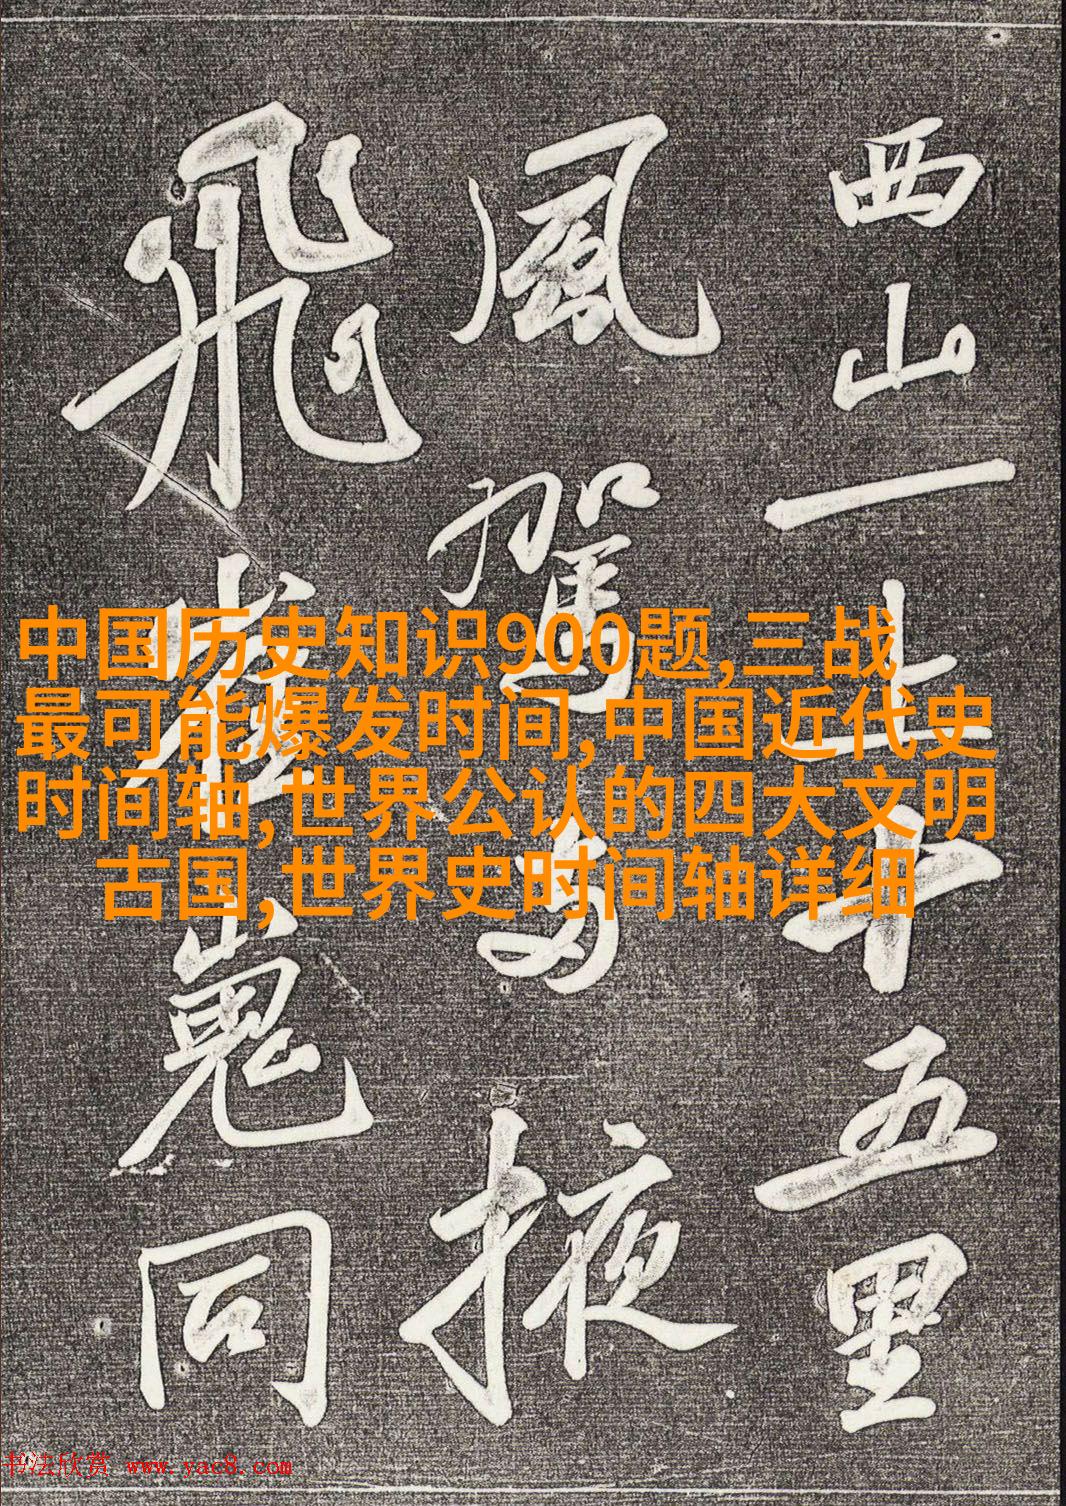 西山一上十五里
風駕兩掖
飛崔嵬同
中国历史知识900题,三战
最可能爆发时间,中国近代史
时间轴,世界公认的四大文明
古国,世界史时间轴详细
书法欣赏 www.yac8.com